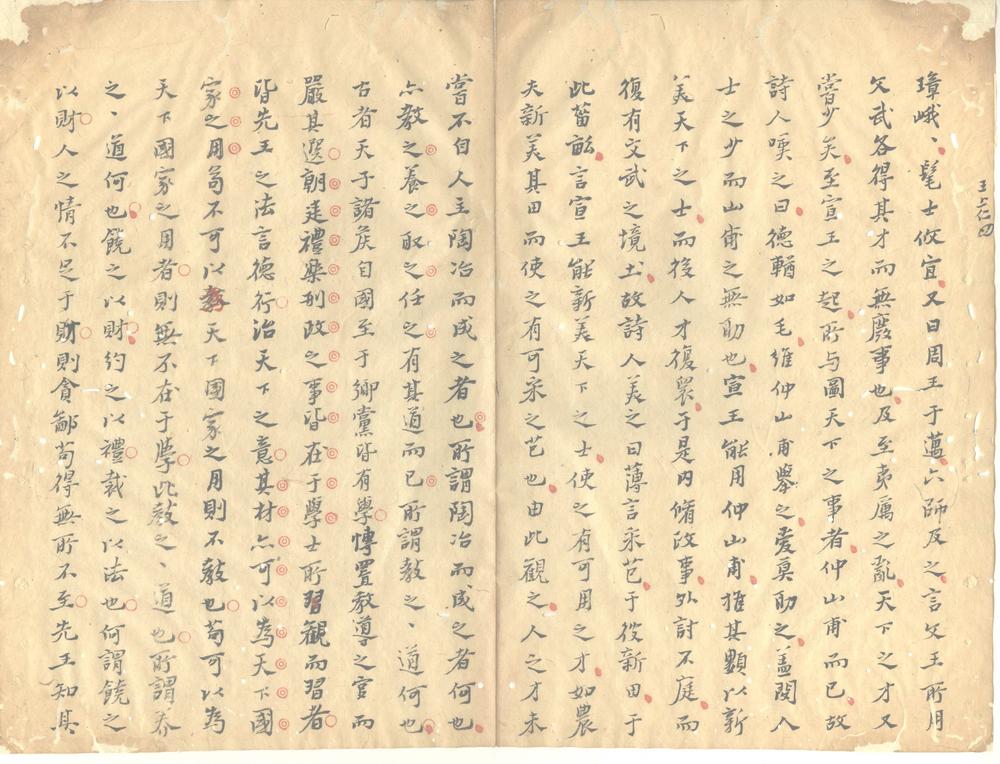 璋峨、髦士攸宜又曰周王于邁六師及之言文王所用
文武各得其才而無廢事也及至夷厲之亂天下之才又
嘗少矣至宣王之起所与圖天下之事者仲山甫而已故
詩人嘆之曰德輶如毛維仲山甫舉之愛莫助之盖閔人
士之少而山甫之無助也宣王能用仲山甫推其類以新
美天下之士而後人才復衆于是内脩政事外討不庭而
復有文武之境土故詩人美之曰薄言采芑于彼新田于
此菑畝言宣王能新美天下之士使之有可用之才如農
夫新美其田而使之有可采之芑也由此觀之人之才未
嘗不自人主陶冶而成之者也所謂陶冶而成之者何也
亦教之養之取之任之有其道而已所謂教之、道何也
古者天子諸侯自國至于鄉黨皆有學慱置教導之官而
嚴其選朝廷禮樂刑政之事皆在于學士所習觀而習者
皆先王之法言德行治天下之意其材亦可以為天下國
家之用苟不可以為天下國家之用則不教也苟可以為
天下國家之用者則無不在于學此教之、道也所謂养
之、道何也饒之以財約之以禮裁之以法也何謂饒之
以財人之情不足于財則貪鄙苟得無所不至先王知其